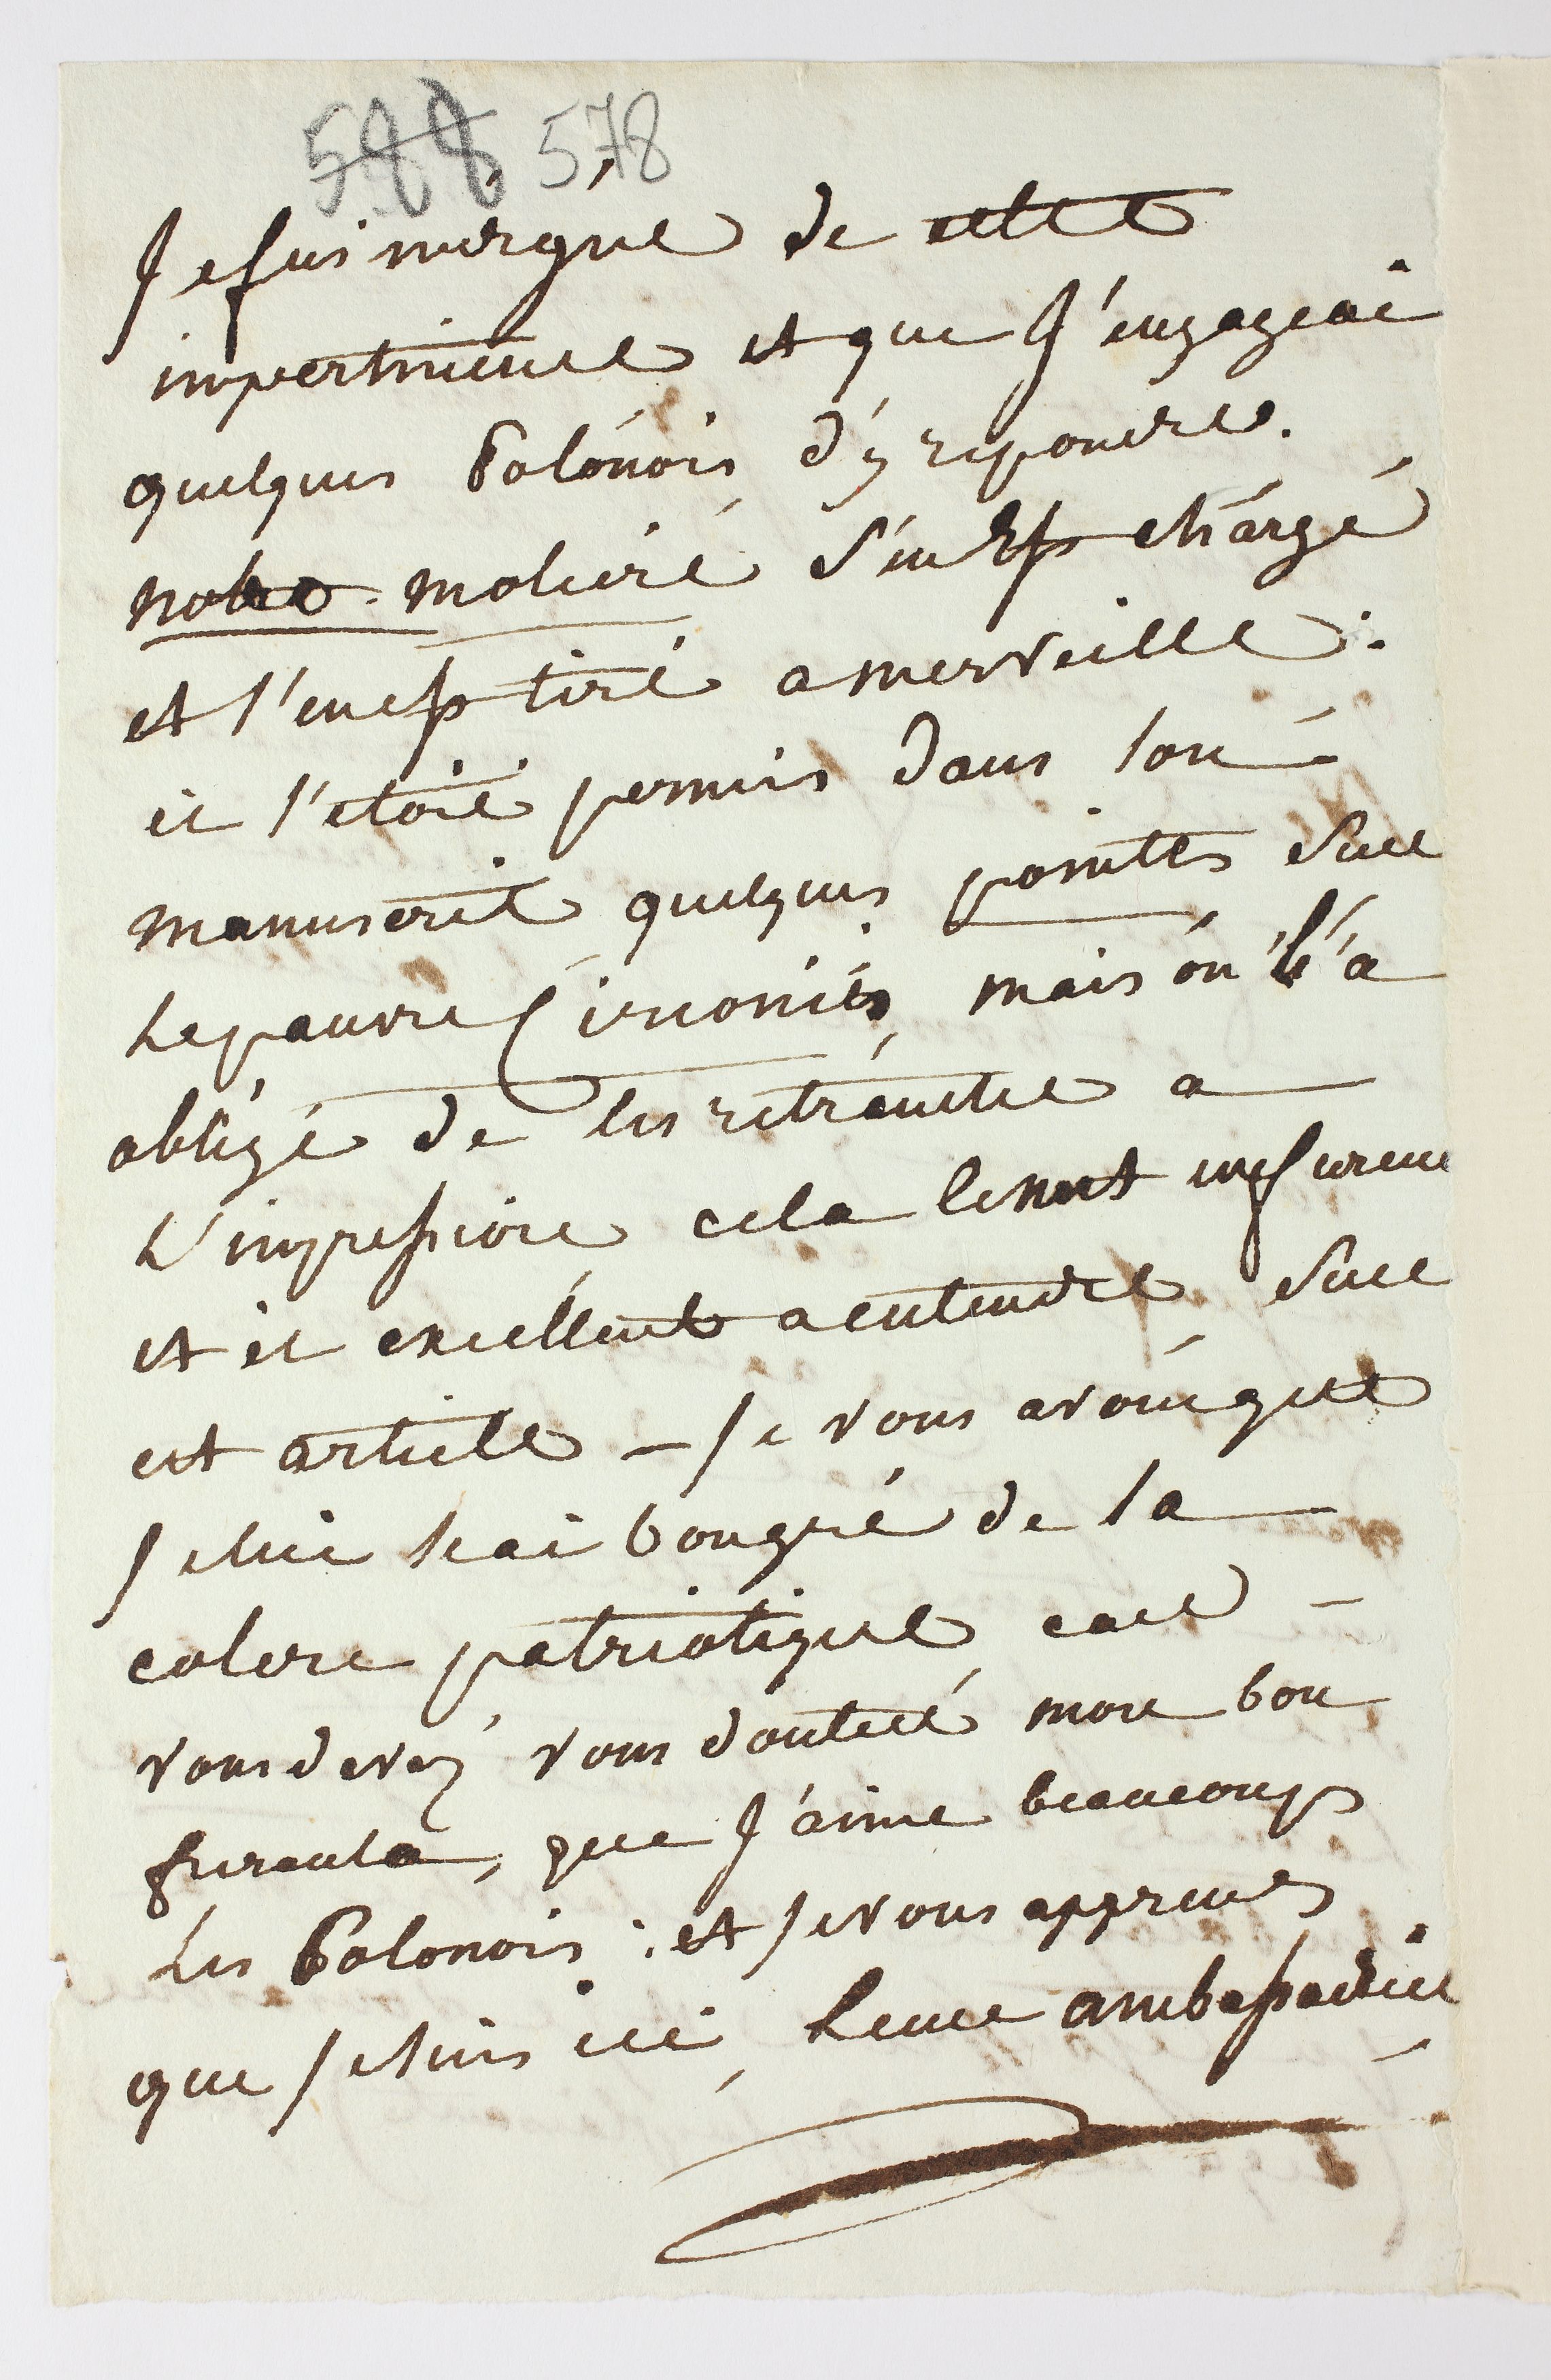 588 578
Je fus indigné de cette
impertinence et que J'engageai
quelques Polonois d'y repondre.
notre moliere s'en est chargé
et s'en est tiré a merveille.
il s'etoit permis dans son
manuscrit quelques pointes sur
le pauvre mais on l'a
obligé de les retrancher a
L'impression cela le met en fureur
et il excellent a entendre sur
cet article – Je vous avoue que
Je lui sai bon gré de sa
colere patriotique car
vous devez vous douter mon bon
que J'aime beaucoup
Les Polonois : et Je vous apprends
que Je suis ici Leur ambassadrice